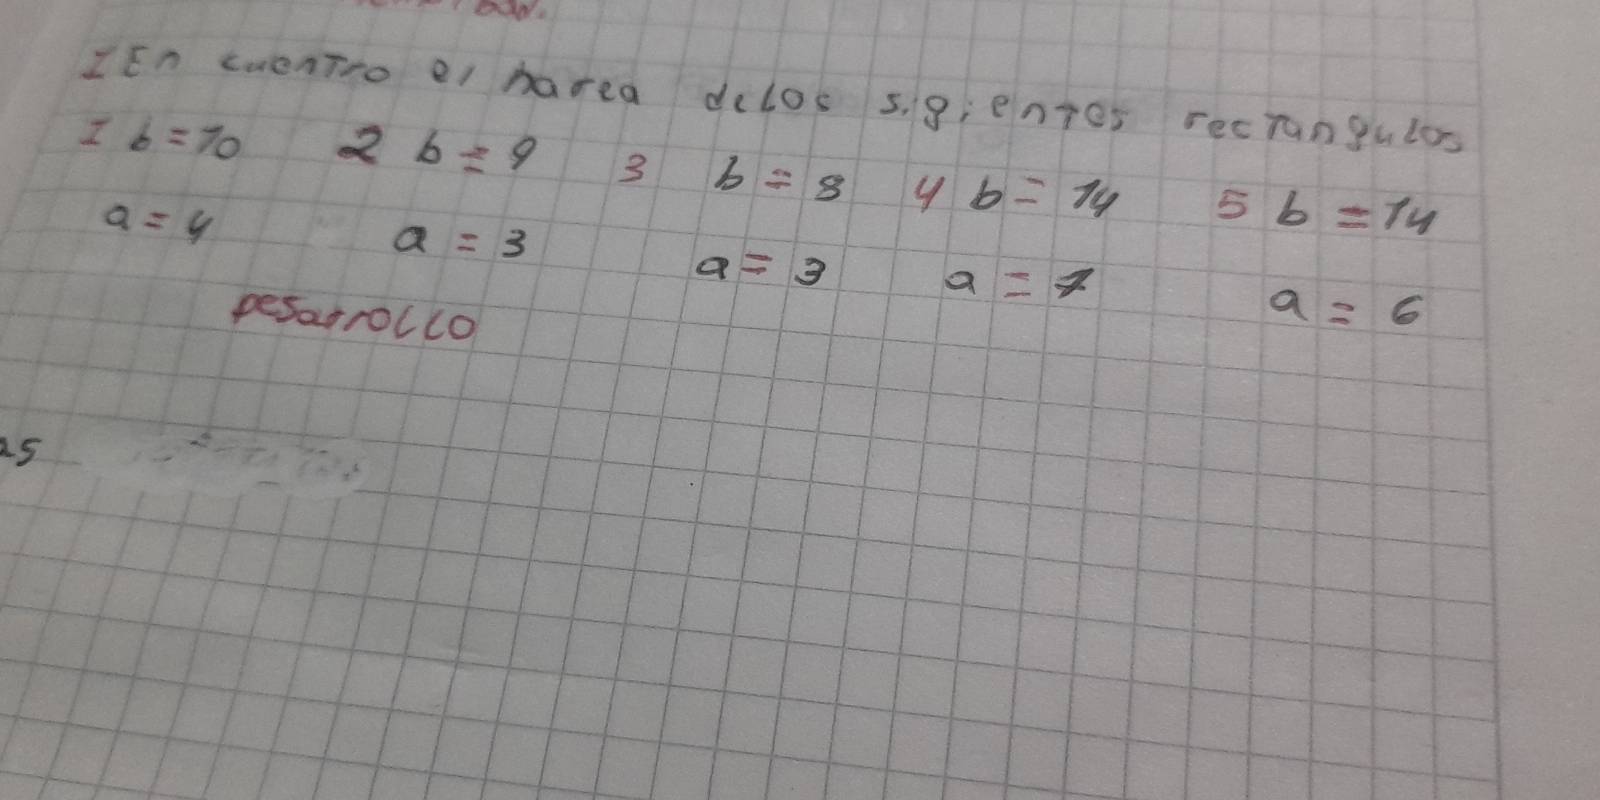 I En cuentro el harea delos sigientes rectangulos
I b=10 2 b=9 3 b=8 4 b=14 5 b=14
a=4 a=3 a=3 a=7 a=6
Desarrollo
as